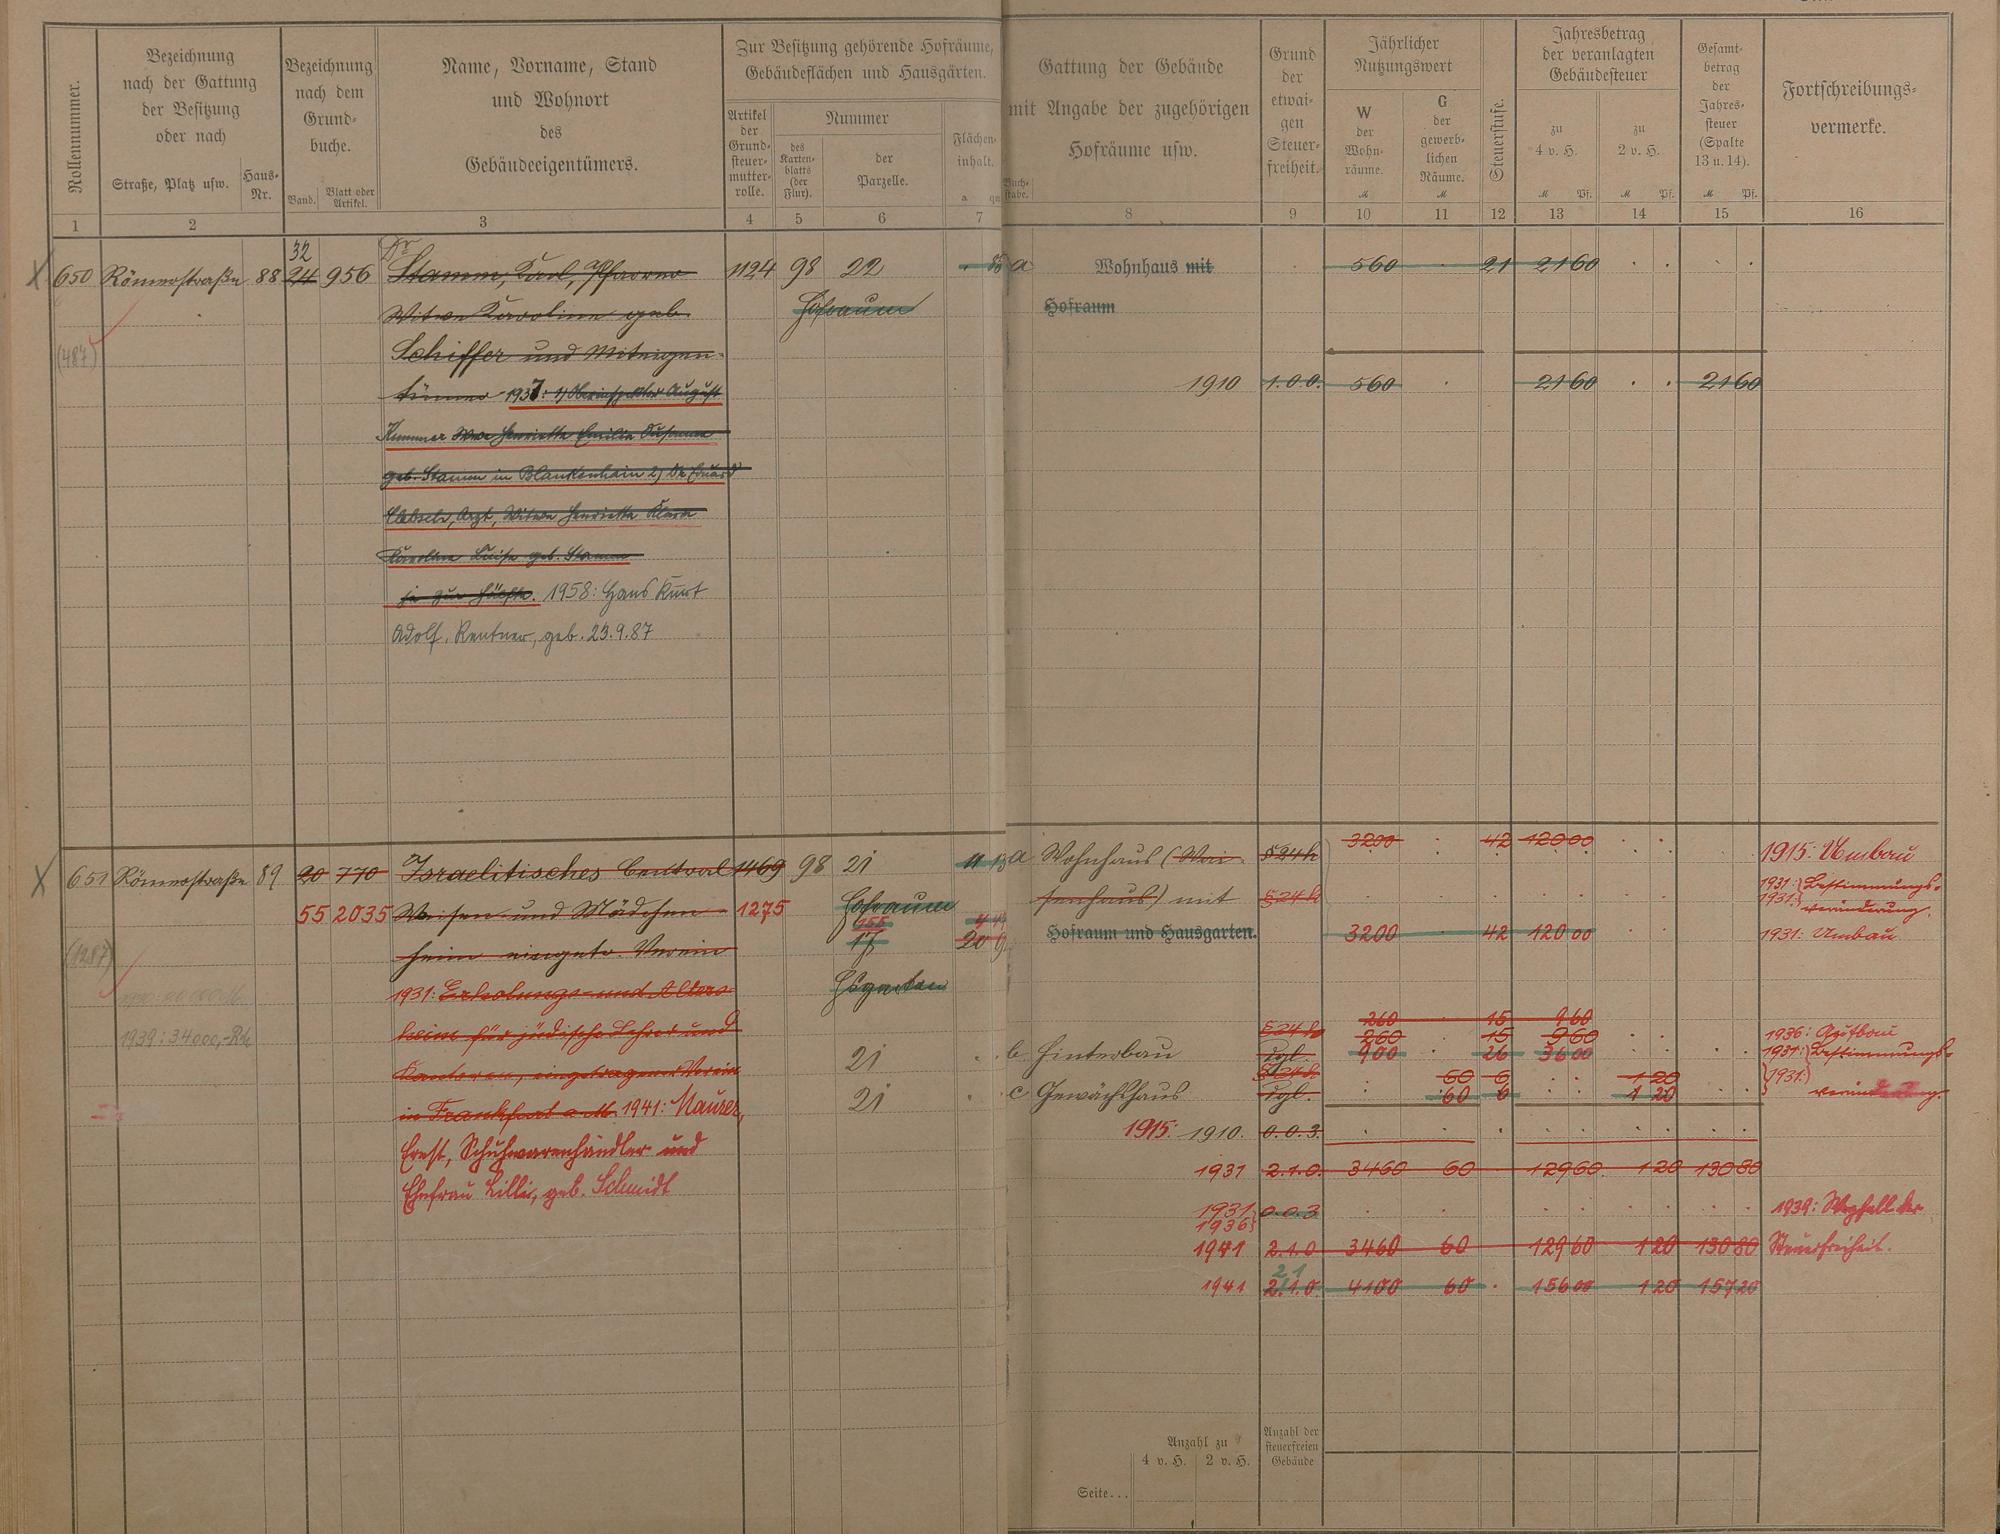 Rollennummer.
Bezeichnung
nach der Gattung
der Besitzung
oder nach
Straße, Platz usw.
Haus-
Nr.
Bezeichnung
nach dem
Grund-
buche.
Band.
Blatt oder
Artikel.
Name, Vorname, Stand
und Wohnort
des
Gebäudeeigentümers.
Zur Besitzung gehörende Hofräume,
Gebäudeflächen und Hausgärten.
Artikel
der
Grund-
steuer-
mutter-
rolle.
Nummer
des
Karten-
blatts
(der
Flur).
der
Parzelle.
Flächen-
inhalt.
a qm
Buch-
stabe.
Gattung der Gebäude
mit Angabe der zugehörigen
Hofräume usw.
Grund
der
etwai-
gen
Steuer-
freiheit.
Jährlicher
Nutzungswert
W
der
Wohn-
räume.
M
G
der
gewerb-
lichen
Räume.
M
Steuerstufe.
Jahresbetrag
der veranlagten
Gebäudesteuer
zu
4 v. H.
M Pf.
zu
2 v. H.
M Pf.
Gesamt-
betrag
der
Jahres-
steuer
(Spalte
13 u. 14).
M Pf.
Fortschreibungs-
vermerke.
1 2 3 4 5 6 7 8 9 10 11 12 13 14 15 16
32
Dr
650 Römerstraße 88 24 956 Stamm, Karl, Pfarrer 1124 98 22 a Wohnhaus mit 560 21 21 60
Witwe Karoline geb. Hofraum Hofraum
(487) Schiffer und Miteigen-
tümer 1937: 1) Oberinspektor August 1910 1.0.0. 560 21 60 21 60
Kummer Wwe Henriette Emilie Susanna
geb. Stamm in Blankenhain 2) Dr Eduard
Arzt, Witwe Henriette Klara
Karoline Luise geb. Stamm
je zur Hälfte. 1958: Hans Kurt
Adolf, Rentner, geb. 23.9.87
651 Römerstraße 89 20 770 Israelitisches Central 1469 98 21 11 13 a Wohnhaus (Wai- § 24 h 3200 42 120 00 1915: Umbau
55 2035 Waisen- und Mädchen- 1275 Hofraum senhaus) mit § 24 h 1931: Bestimmungs-
1931: veränderung.
heim eingetr. Verein 17 Hofraum und Hausgarten. 3200 42 120 00 1931: Umbau
(1287)
1931: Erholungs- und Alters- Hsgarten
1939: 34000,- RM heim für jüdische Lehrer und § 24 h 260 15 9 60
260 15 9 60 1936: Aufbau
Kantoren, eingetragener Verein 21 b. Hinterbau dgl. 900 26 36 00 1931: Bestimmungs-
§ 24 h 60 6 1 20 1931:
in Frankfurt a. M. 1941: Maurer, 21 c Gewächshaus dgl. 60 6 1 20 veränderung.
Ernst, Schuhwarenhändler und 1915: 1910. 0.0.3.
Ehefrau Lilli, geb. Schmidt 1931 2.1.0. 3460 60 129 60 1 20 130 80
1931 0.0.3 1939: Wegfall der
1936
1941 2.1.0 3460 60 129 60 1 20 130 80 Steuerfreiheit.
2 1
1941 2.1.0. 4100 60 156 00 1 20 157 20
Anzahl zu
4 v. H. 2 v. H.
Anzahl der
steuerfreien
Gebäude
Seite...